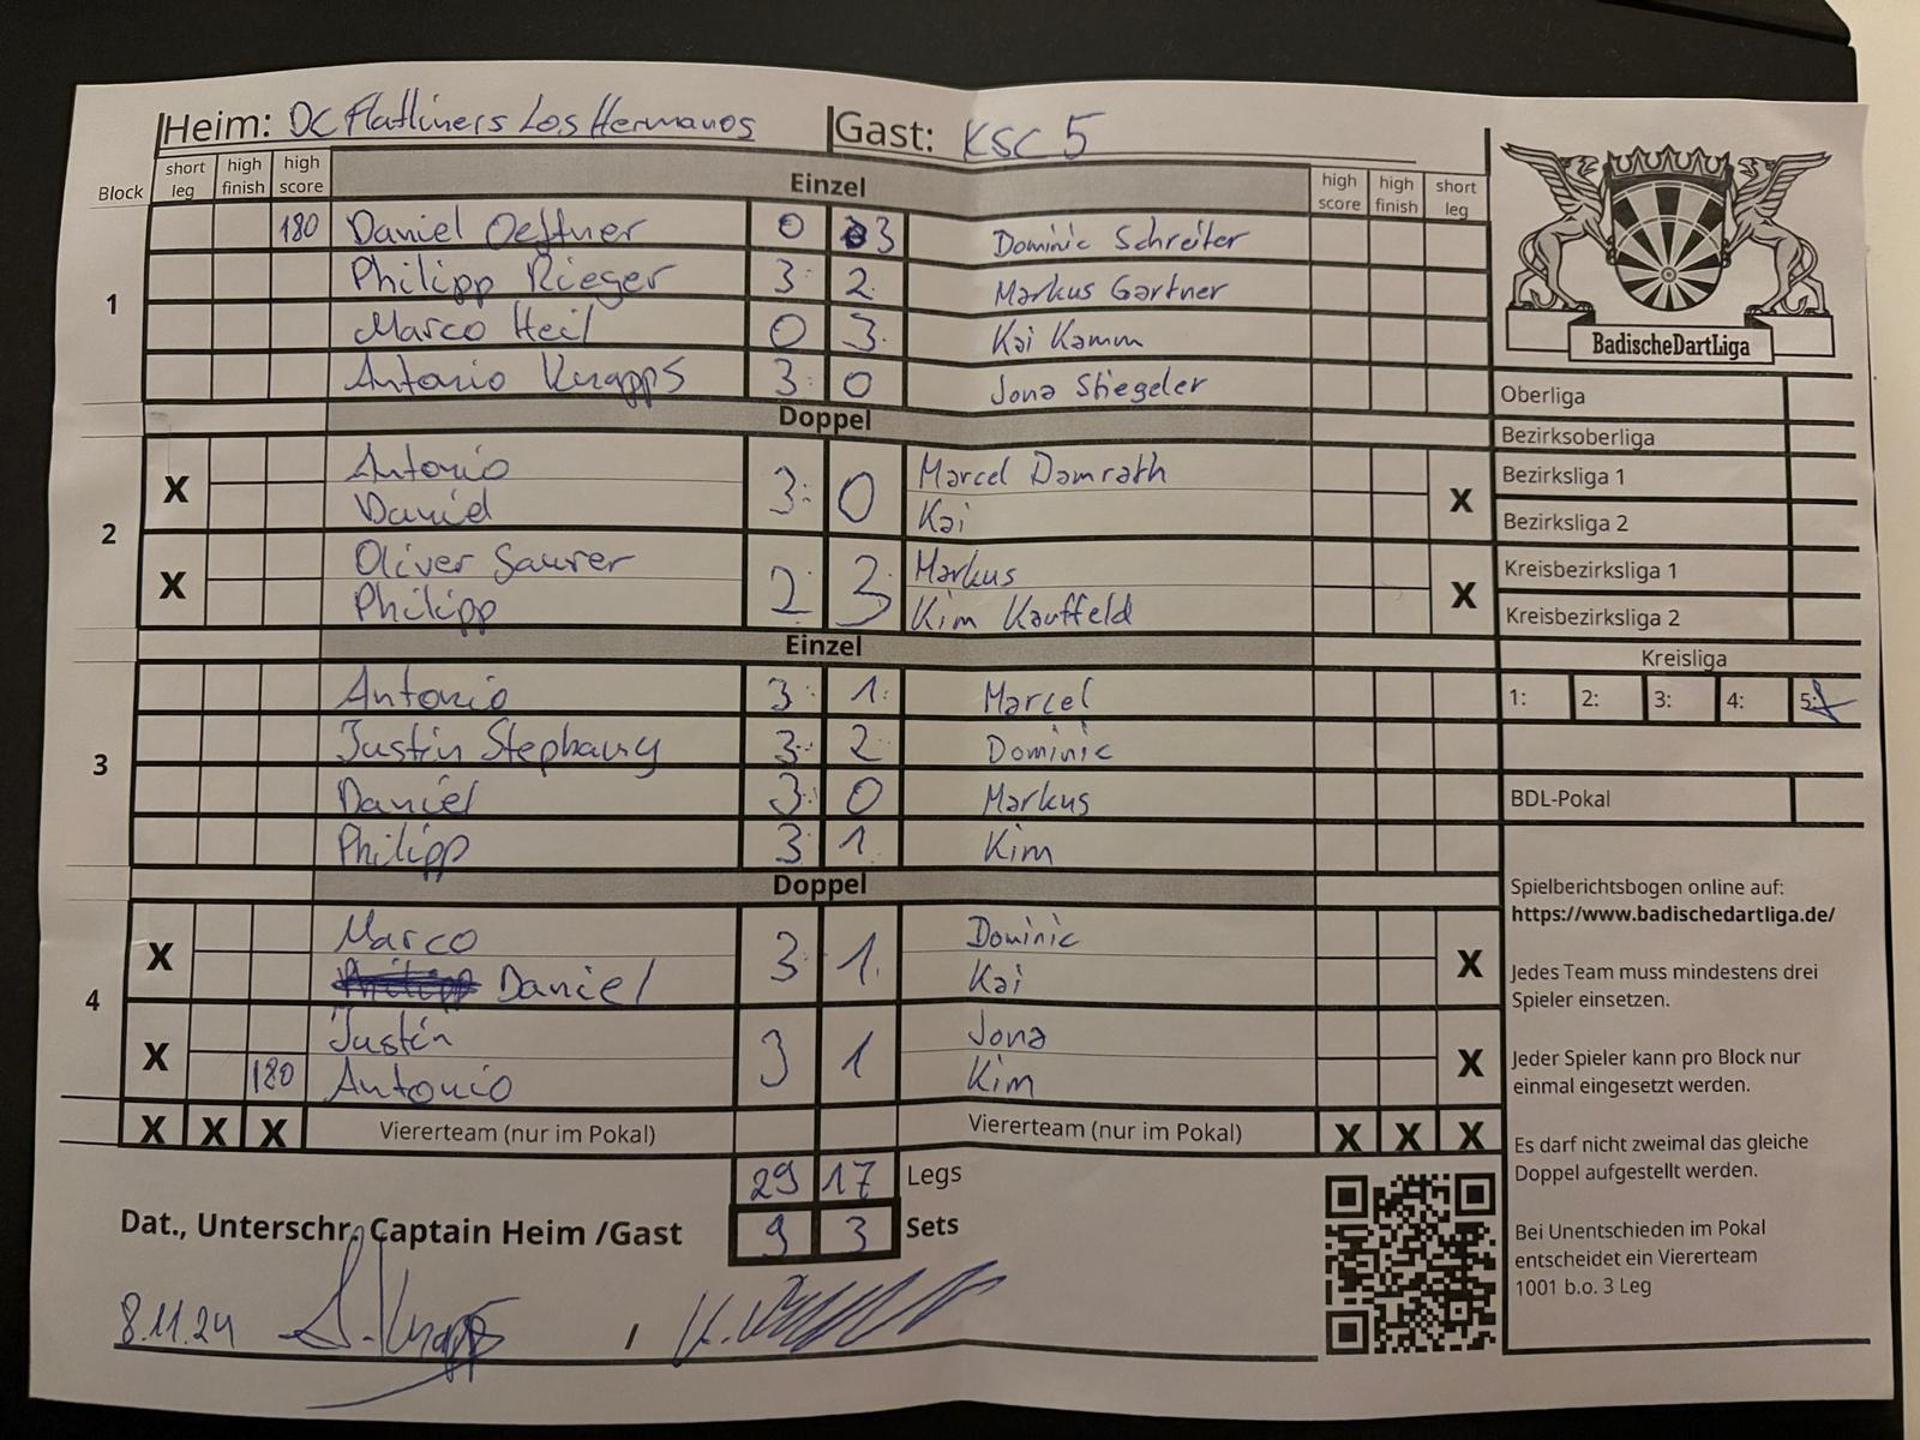 Heim: DC Flatliners Los Hermanos Gast: KSC 5
Block short leg high finish high score Einzel high score high finish short leg
1
180 Daniel Oeftner 0 3 Dominic Schreiter
Philipp Rieger 3: 2 Markus Gartner
Marco Heil 0 3 Kai Kamm
Antonio Knapps 3: 0 Jona Stiegeler
Doppel
2
X Antonio 3: 0 Marcel Damrath X
Daniel Kai
X Oliver Saurer 2: 3 Markus X
Philipp Kim Kauffeld
Einzel
3
Antonio 3: 1: Marcel
Justin Stephany 3: 2 Dominic
Daniel 3: 0 Markus
Philipp 3: 1 Kim
Doppel
4
X Marco 3: 1 Dominic X
Daniel Kai
X Justin 3 1 Jona X
180 Antonio Kim
X X X Viererteam (nur im Pokal) Viererteam (nur im Pokal) X X X
29 17 Legs
Dat., Unterschr. Captain Heim /Gast 9 3 Sets
8.11.24 A. Knapps /
BadischeDartLiga
Oberliga
Bezirksoberliga
Bezirksliga 1
Bezirksliga 2
Kreisbezirksliga 1
Kreisbezirksliga 2
Kreisliga
1: 2: 3: 4: 5: X
BDL-Pokal
Spielberichtsbogen online auf:
https://www.badischedartliga.de/
Jedes Team muss mindestens drei
Spieler einsetzen.
Jeder Spieler kann pro Block nur
einmal eingesetzt werden.
Es darf nicht zweimal das gleiche
Doppel aufgestellt werden.
Bei Unentschieden im Pokal
entscheidet ein Viererteam
1001 b.o. 3 Leg